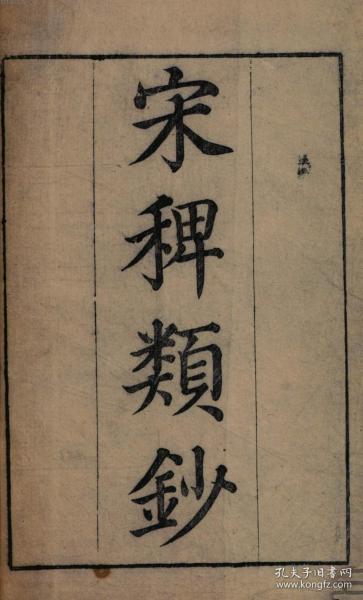 宋稗類鈔
孔夫子旧书网
www.kongfz.com